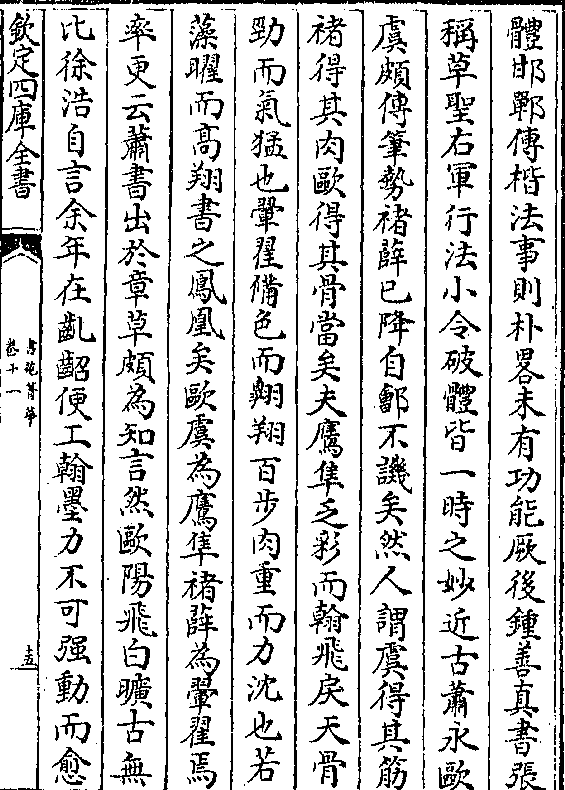 體邯鄲傳楷法事則朴畧未有功能厥後鍾善真書張
稱草聖右軍行法小令破體皆一時之妙近古蕭永歐
虞頗傳筆勢褚薛已降自鄶不譏矣然人謂虞得其筋
褚得其肉歐得其骨當矣夫鷹隼乏彩而翰飛戾天骨
勁而氣猛也翬翟備色而翱翔百步肉重而力沈也若
藻曜而高翔書之鳳凰矣歐虞為鷹隼褚薛為翬翟焉
率更云蕭書出於章草頗為知言然歐陽飛白曠古無
比徐浩自言余年在齓齠便工翰墨力不可强勤而愈
欽定四庫全書
書苑菁華
卷十一
十五